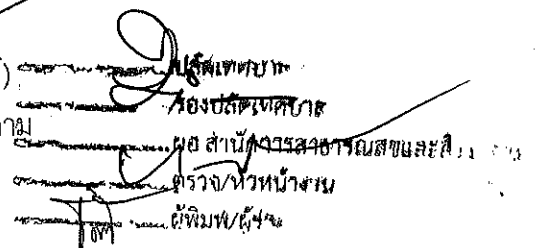 )
ปลัดเทศบาล
รองปลัดเทศบาล
าม
ผอ สำนักการสาธารณสุขและสิ่ง
ตรวจ/หัวหน้างาน
ผู้พิมพ์/ผู้